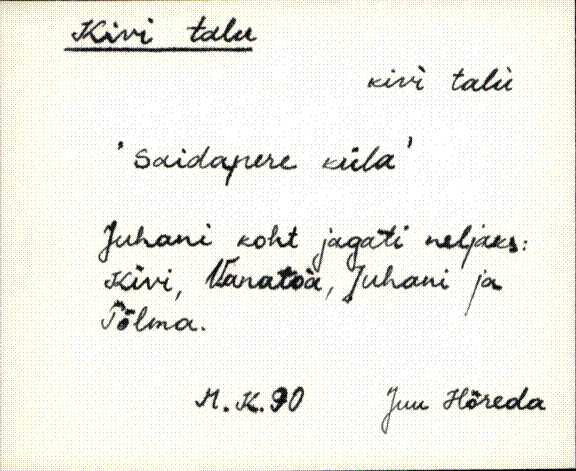 Kivi talu
kivì talù
'Saidapere küla'
Juhani koht jagati neljaks:
Kivi, Vanatoa, Juhani ja
Põlma.
M.K.90 Juu Hõreda